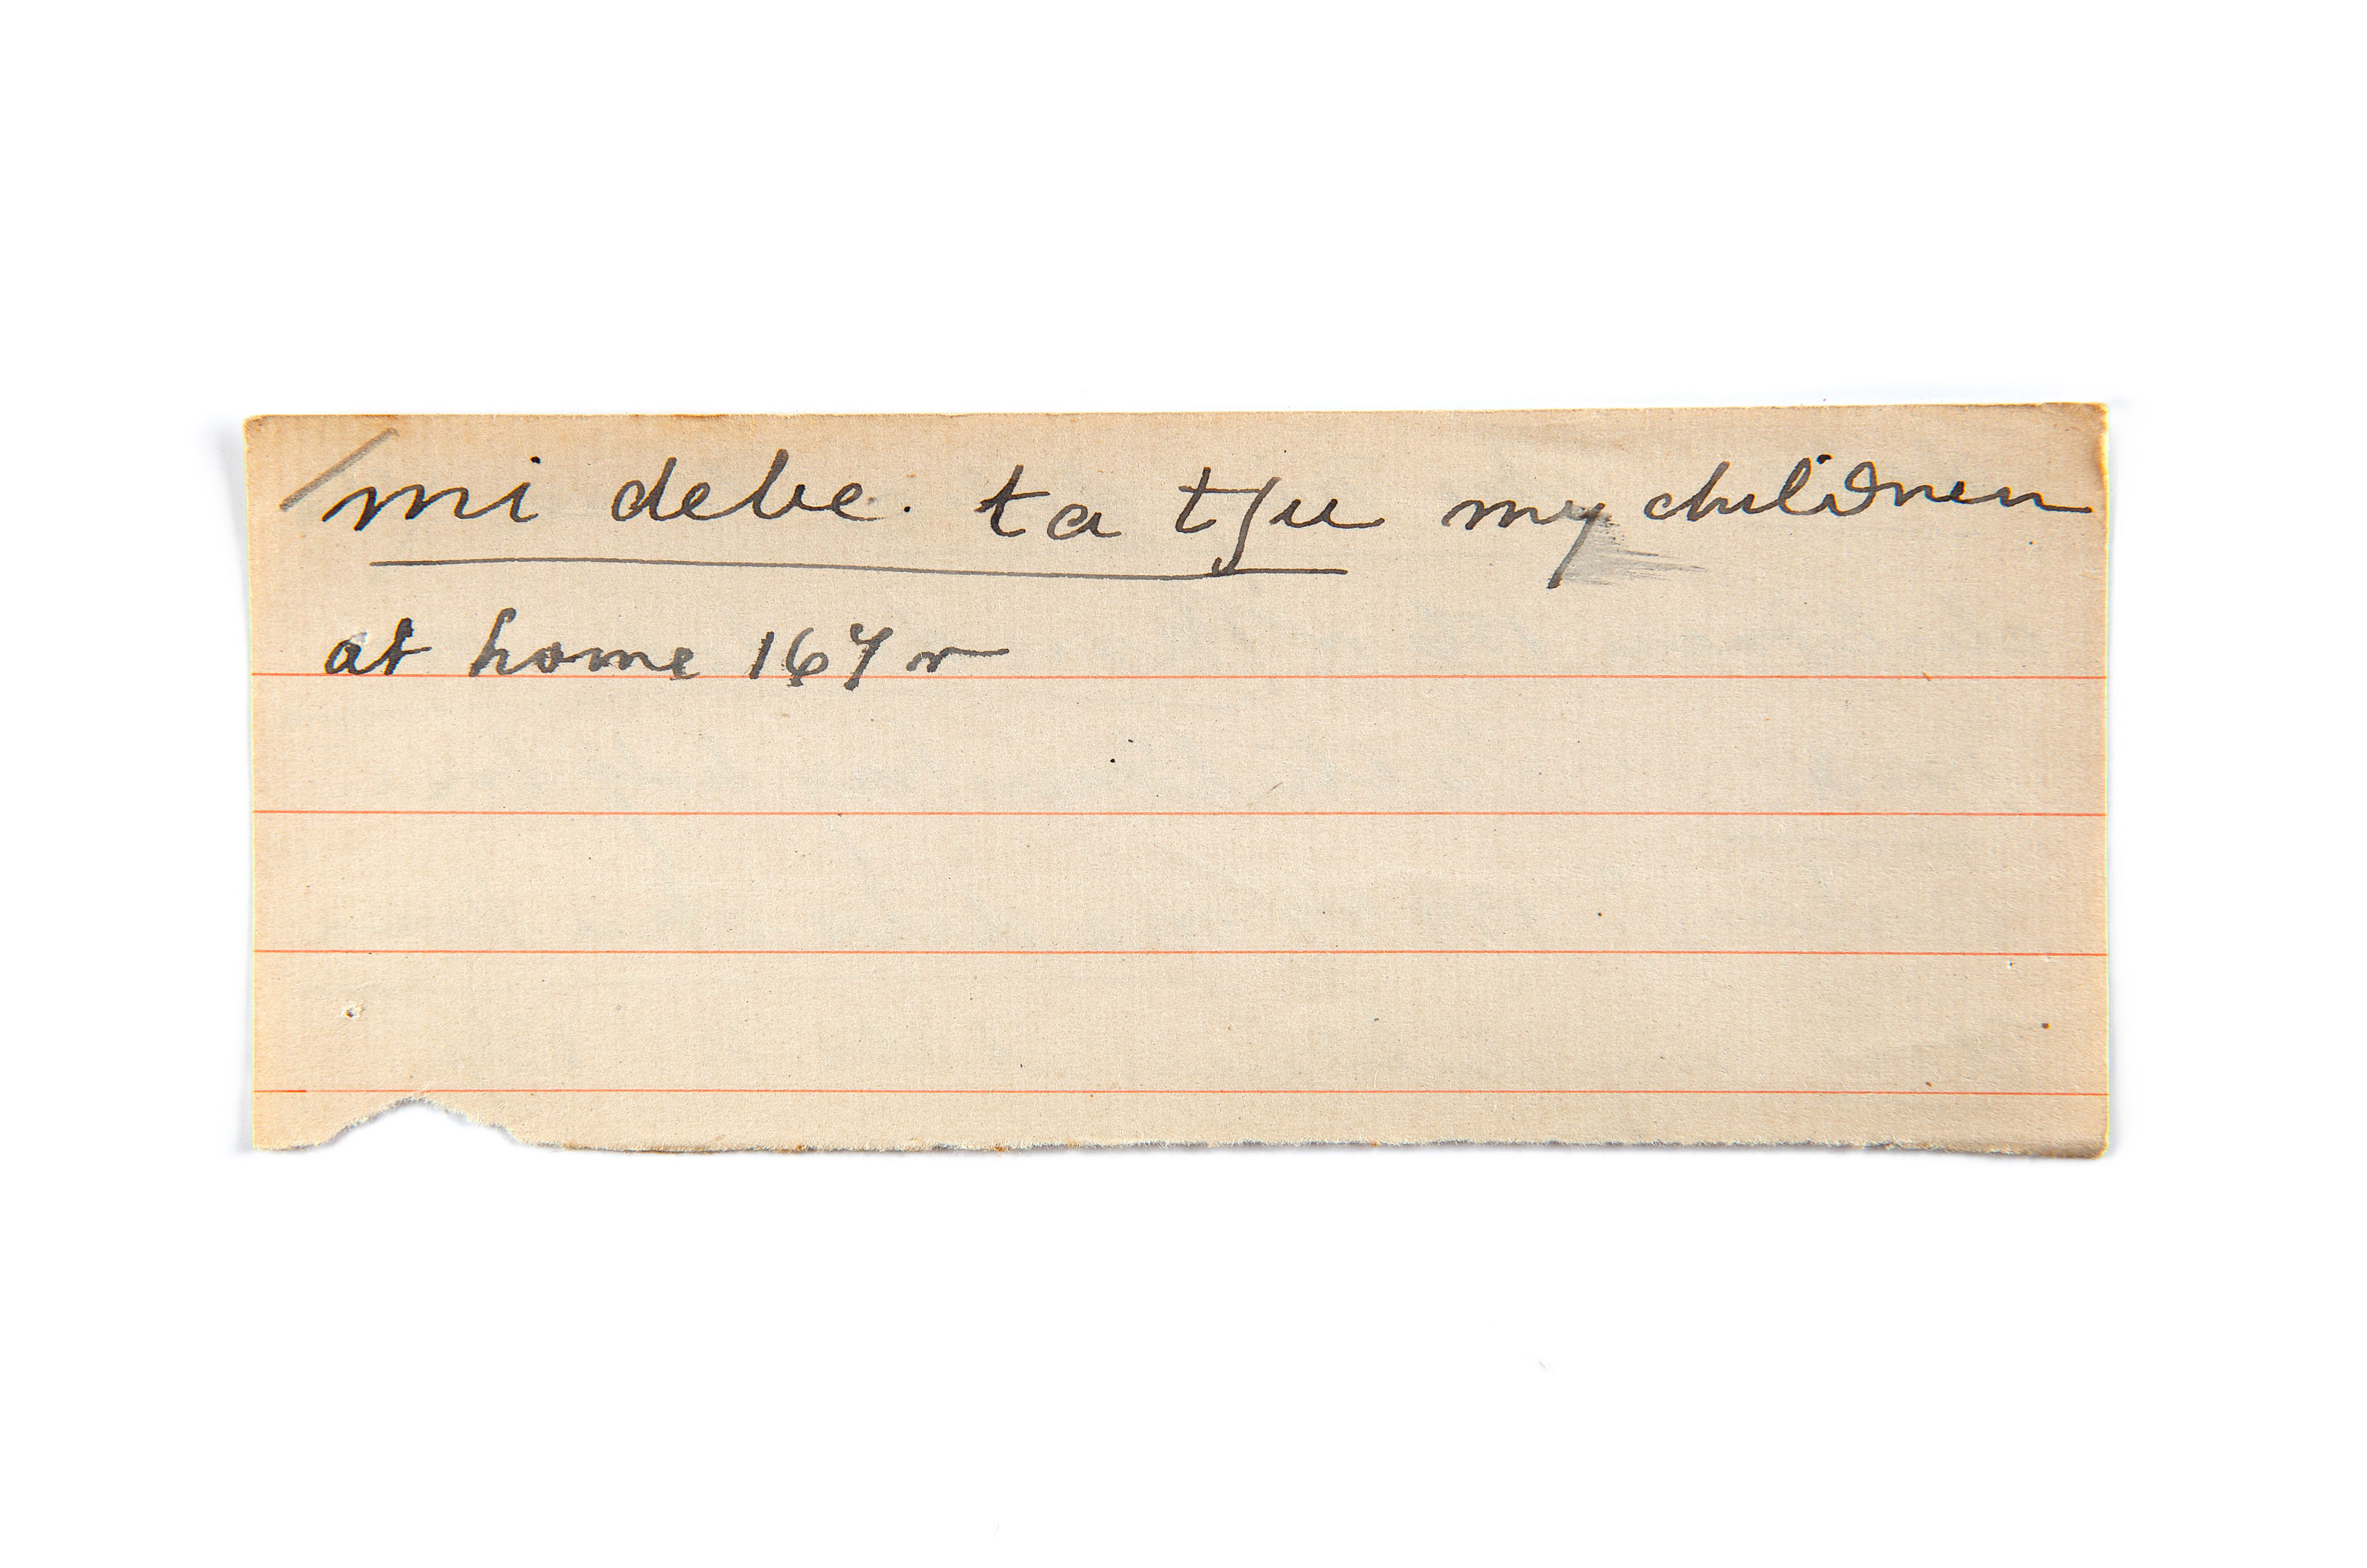 mi debe. ta tʃu my children
at home 167 r